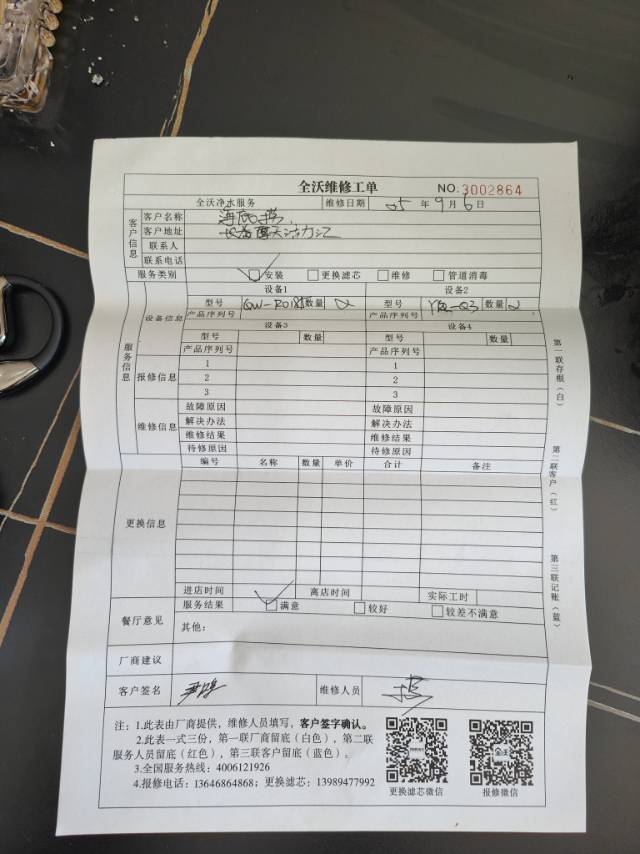 全沃维修工单 NO:3002864
全沃净水服务 维修日期 25 年 9 月 6 日
客户信息
客户名称 海底捞
客户地址
联系人
联系电话
服务类别 安装 更换滤芯 维修 管道消毒
服务信息
设备信息
设备1 设备2
型号 数量 2 型号 YR-Q3 数量 2
产品序列号 产品序列号
设备3 设备4
型号 数量 型号 数量
产品序列号 产品序列号
报修信息
1 1
2 2
3 3
维修信息
故障原因 故障原因
解决办法 解决办法
维修结果 维修结果
待修原因 待修原因
更换信息
编号 名称 数量 单价 合计 备注
进店时间 离店时间 实际工时
餐厅意见
服务结果 满意 较好 较差不满意
其他：
厂商建议
客户签名 维修人员
注：1.此表由厂商提供，维修人员填写，客户签字确认。
2.此表一式三份，第一联厂商留底（白色），第二联
服务人员留底（红色），第三联客户留底（蓝色）。
3.全国服务热线：4006121926
4.报修电话：13646864868；更换滤芯：13989477992
更换滤芯微信 报修微信
第一联存根（白）
第二联客户（红）
第三联记账（蓝）